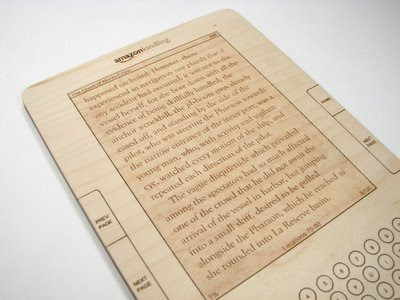 amazonkindling
The Count of Monte Cristo
happened on board. However, those
experienced in navigation saw plainly that if
any accident had occurred, it was not to the
vessel herself, for she bore down with all the
evidence of being skilfully handled, the
anchor a-cockbill, the jib-boom guys already
eased off, and standing by the side of the
pilot, who was steering the Pharaon towards
the narrow entrance of the inner port, was a
young man, who, with activity and vigilant
eye, watched every motion of the ship, and
repeated each direction of the pilot.
The vague disquietude which prevailed
among the spectators had so much affected
one of the crowd that he did not await the
arrival of the vessel in harbor, but jumping
into a small skiff, desired to be pulled
alongside the Pharaon, which he reached as
she rounded into La Reserve basin.
Locations 75-80
PREV
PAGE
NEXT
PAGE
HOME